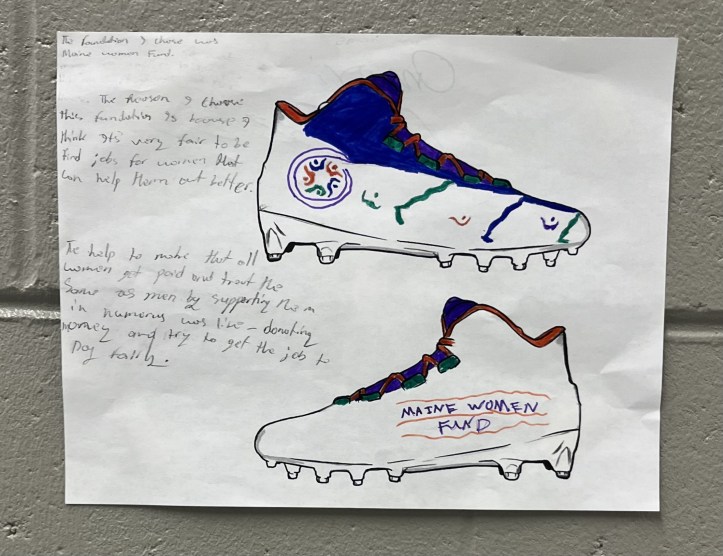 The Foundation I chose was
Maine women Fund.
The Reason I choose
this Fundation is because I
think its very fair to be
find jobs for women that
can help them out better.
The help to make that all
women get paid and treat the
Same as men by supporting them
in numerous was like - donating
money and try to get the job to
Pay
MAINE WOMEN
FUND